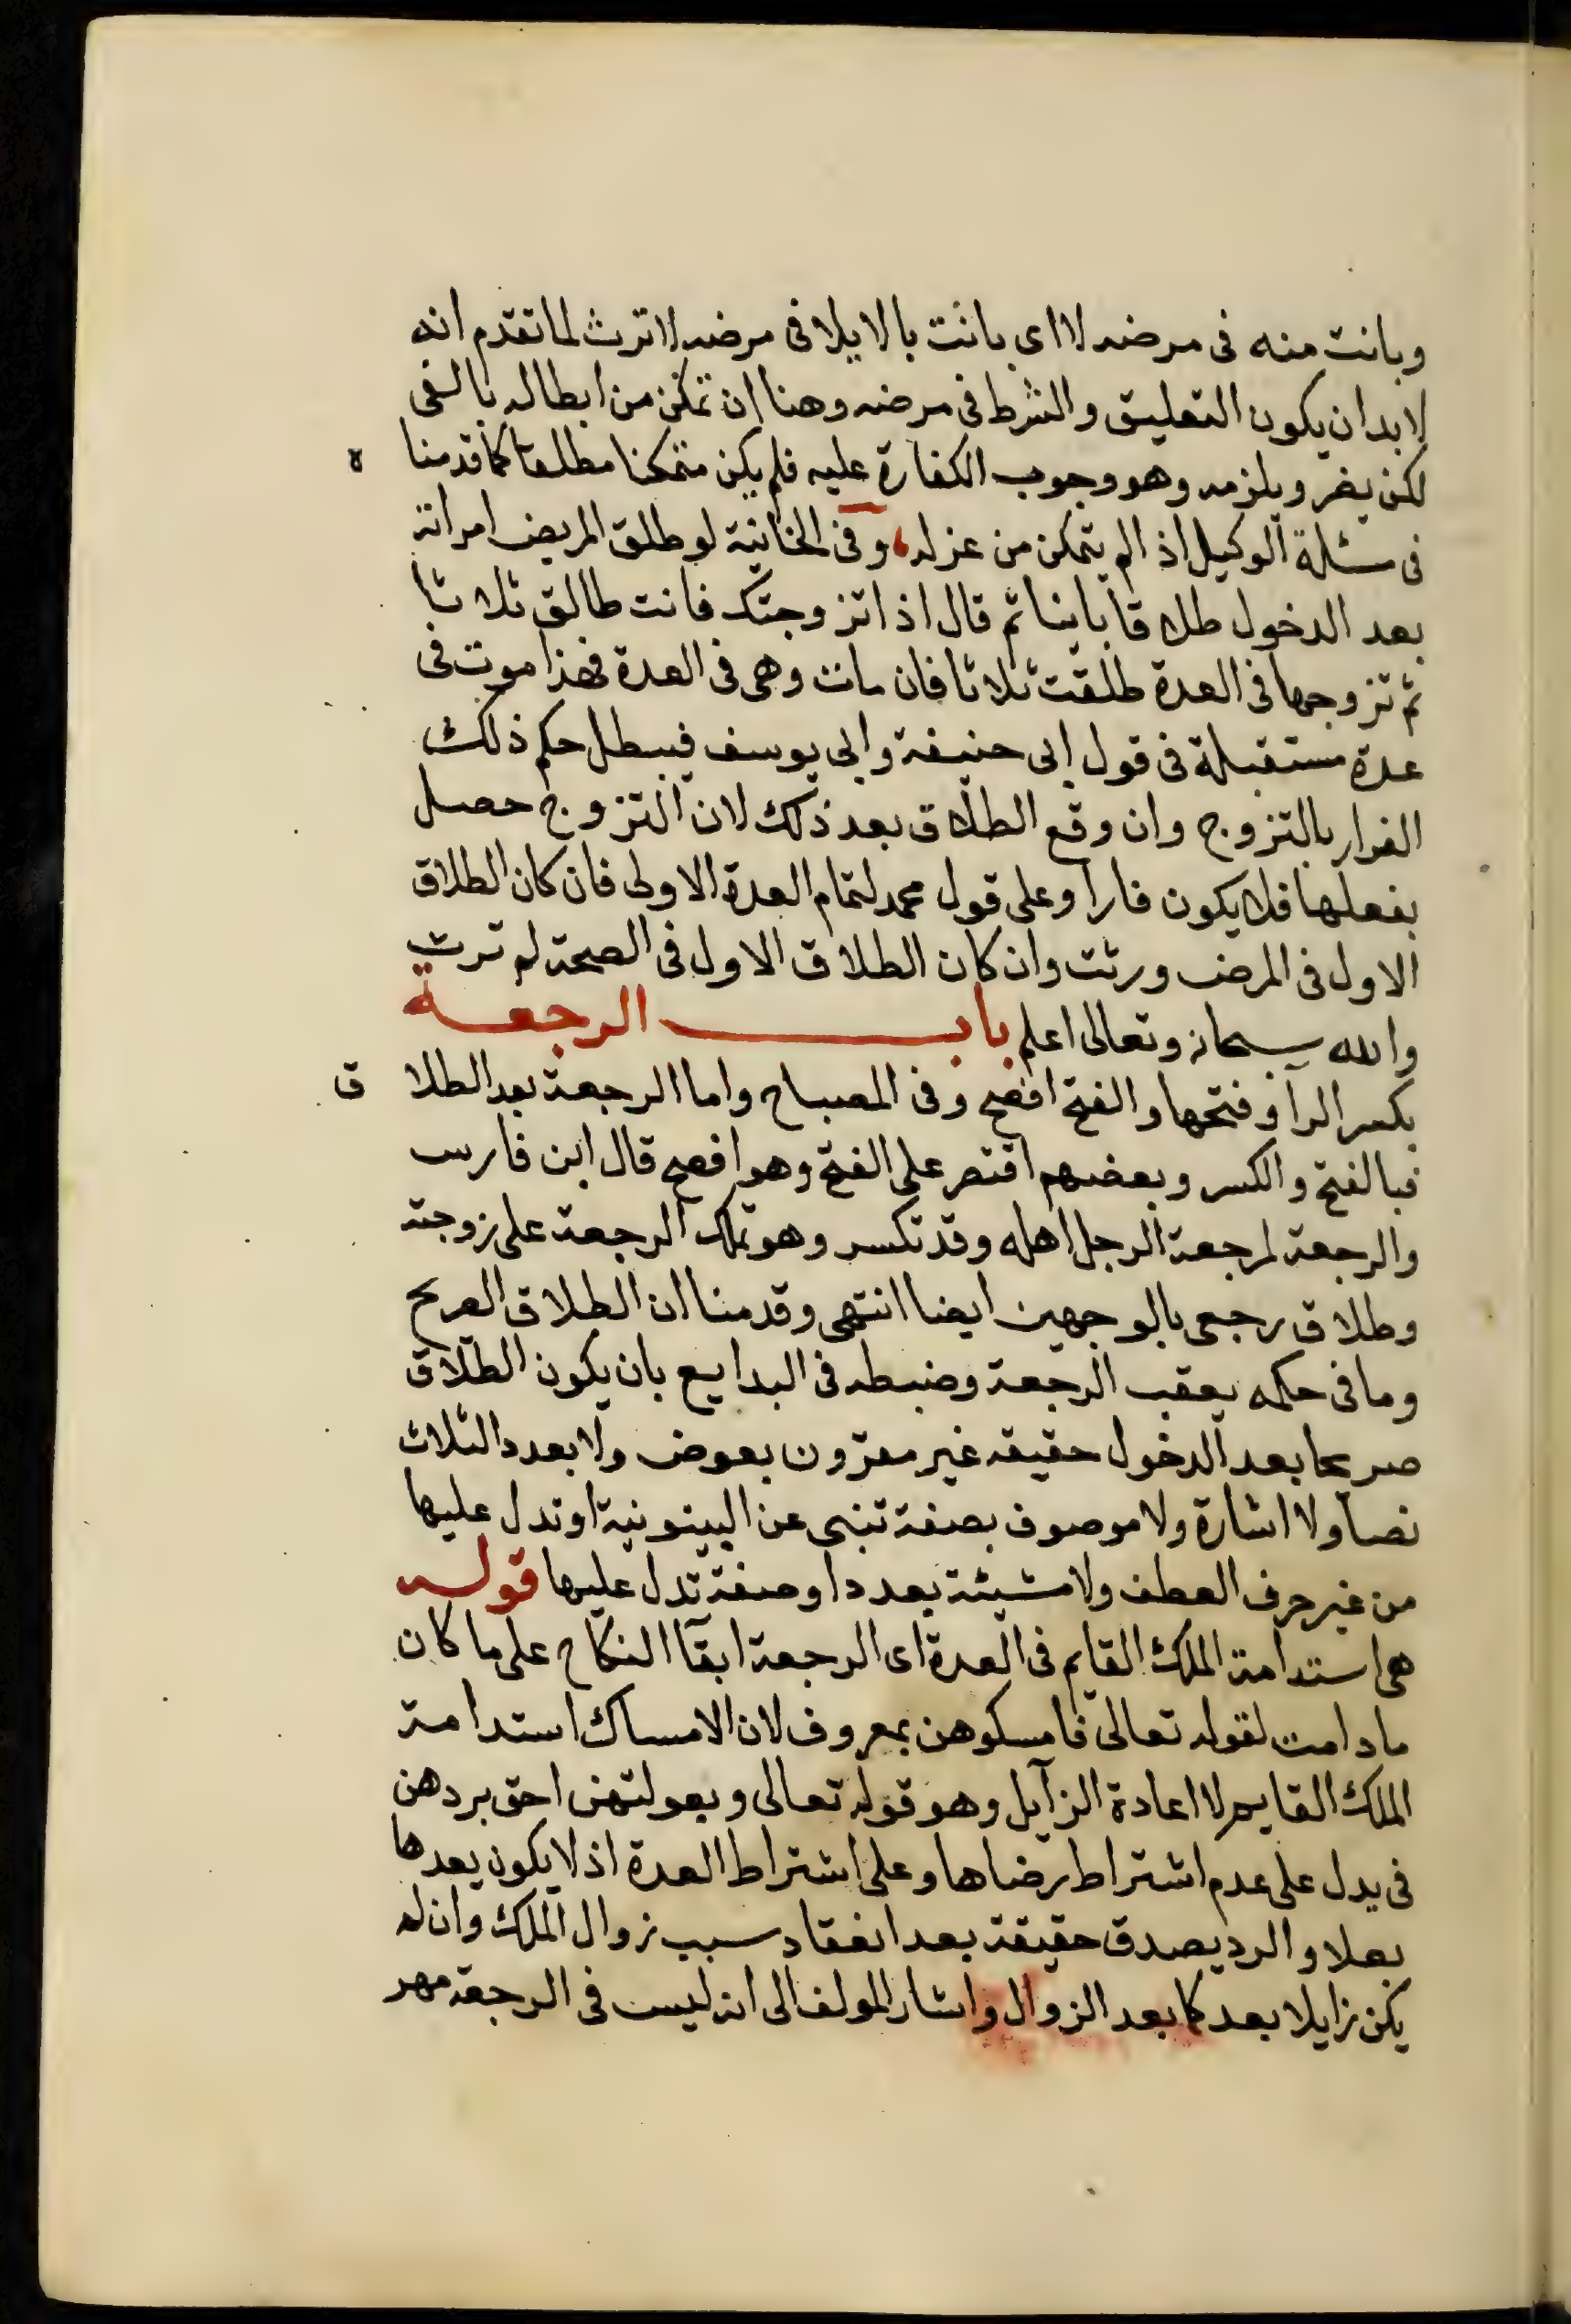 وبانت منه فى مرضه لا اى بانت بالايلا فى مرضه لا ترث لما تقدم انه
لا بد ان يكون التعليق والشرط فى مرضه وهنا ان تمكن من ابطاله بالفى
لكن بضر ويلزمه وهو وجوب الكفارة عليه فلم يكن متمكنا مطلعا كما قدمناه
فى مسئلة الوكيل اذ الم يتمكن من عزله، وفى الخانية لو طلق المريض امراته
بعد الدخول طلاقا باينا ثم قال اذا تزوجتك فانت طالق ثلاثا
ثم تزوجها فى العدة طلقت ثلاثا فان مات وهى فى العدة فهذا موت فى
عدة مستقبلة فى قول ابى حنيفة وابى يوسف فيبطل حكم ذلك
الفرار بالتزوج وان وقع الطلاق بعد ذلك لان التزوج حصل
بفعلها فلا يكون فارا وعلى قول محمد لتمام العدة الاولى فان كان الطلاق
الاول فى المرض ورثت وان كان الطلاق الاول فى الصحة لم ترث
والله سبحانه وتعالى اعلم باب الرجعة
بكسر الرا وفتحها والفتح افصح وفى المصباح واما الرجعة بعد الطلاق
فبالفتح والكسر وبعضهم اقتصر على الفتح وهو افصح قال ابن فارس
والرجعة لمرجعة الرجل اهله وقد تكسر وهو تملك الرجعة على زوجته
وطلاق رجعى بالوجهين ايضا انتهى وقدمنا ان الطلاق الصريح
وما فى حكمه يعقب الرجعة وضبطه فى البدايع بان يكون الطلاق
صريحا بعد الدخول حقيقه غير مقرون بعوض ولا بعدد الثلاث
نصا ولا اشارة ولا موصوف بصفة تنبى عن البينونية او تدل عليها
من غير حرف العطف ولا مشبئة بعدد او صفة تدل عليها قوله
هى استدامة الملك القايم فى العدة اى الرجعة ابقآ النكاح على ما كان
مادامت لقوله تعالى فامسكوهن بمعروف لان الامساك استدامة
الملك القايم لا اعادة الزآيل وهو قوله تعالى وبعولتهن احق بردهن
فى يدل على عدم اشتراط رضاها وعلى اشتراط العدة اذ لا يكون بعدها
بعلا والرد يصدق حقيقة بعد انعقاد سبب زوال الملك وان لم
يكن زايلا بعد كما بعد الزوال واشار المولف الى انه ليست فى الرجعة مهر